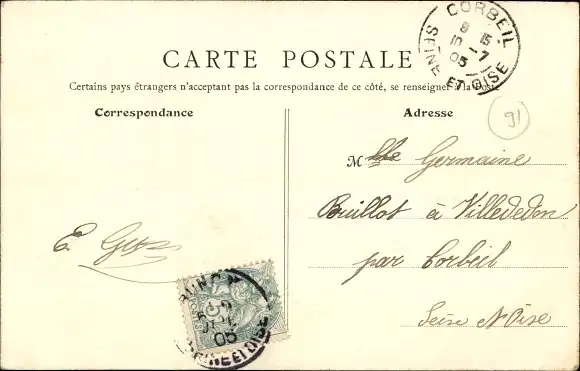 CORBEIL
8 15
10 -7
05
SEINE ET OISE
CARTE POSTALE
Certains pays étrangers n'acceptant pas la correspondance de ce côté, se renseigner à la Poste
Correspondance
Adresse
91
Mlle Germaine
Bouillot à Villededon
par Corbeil
Seine & Oise
E. Gus
05
SEINE ET OISE